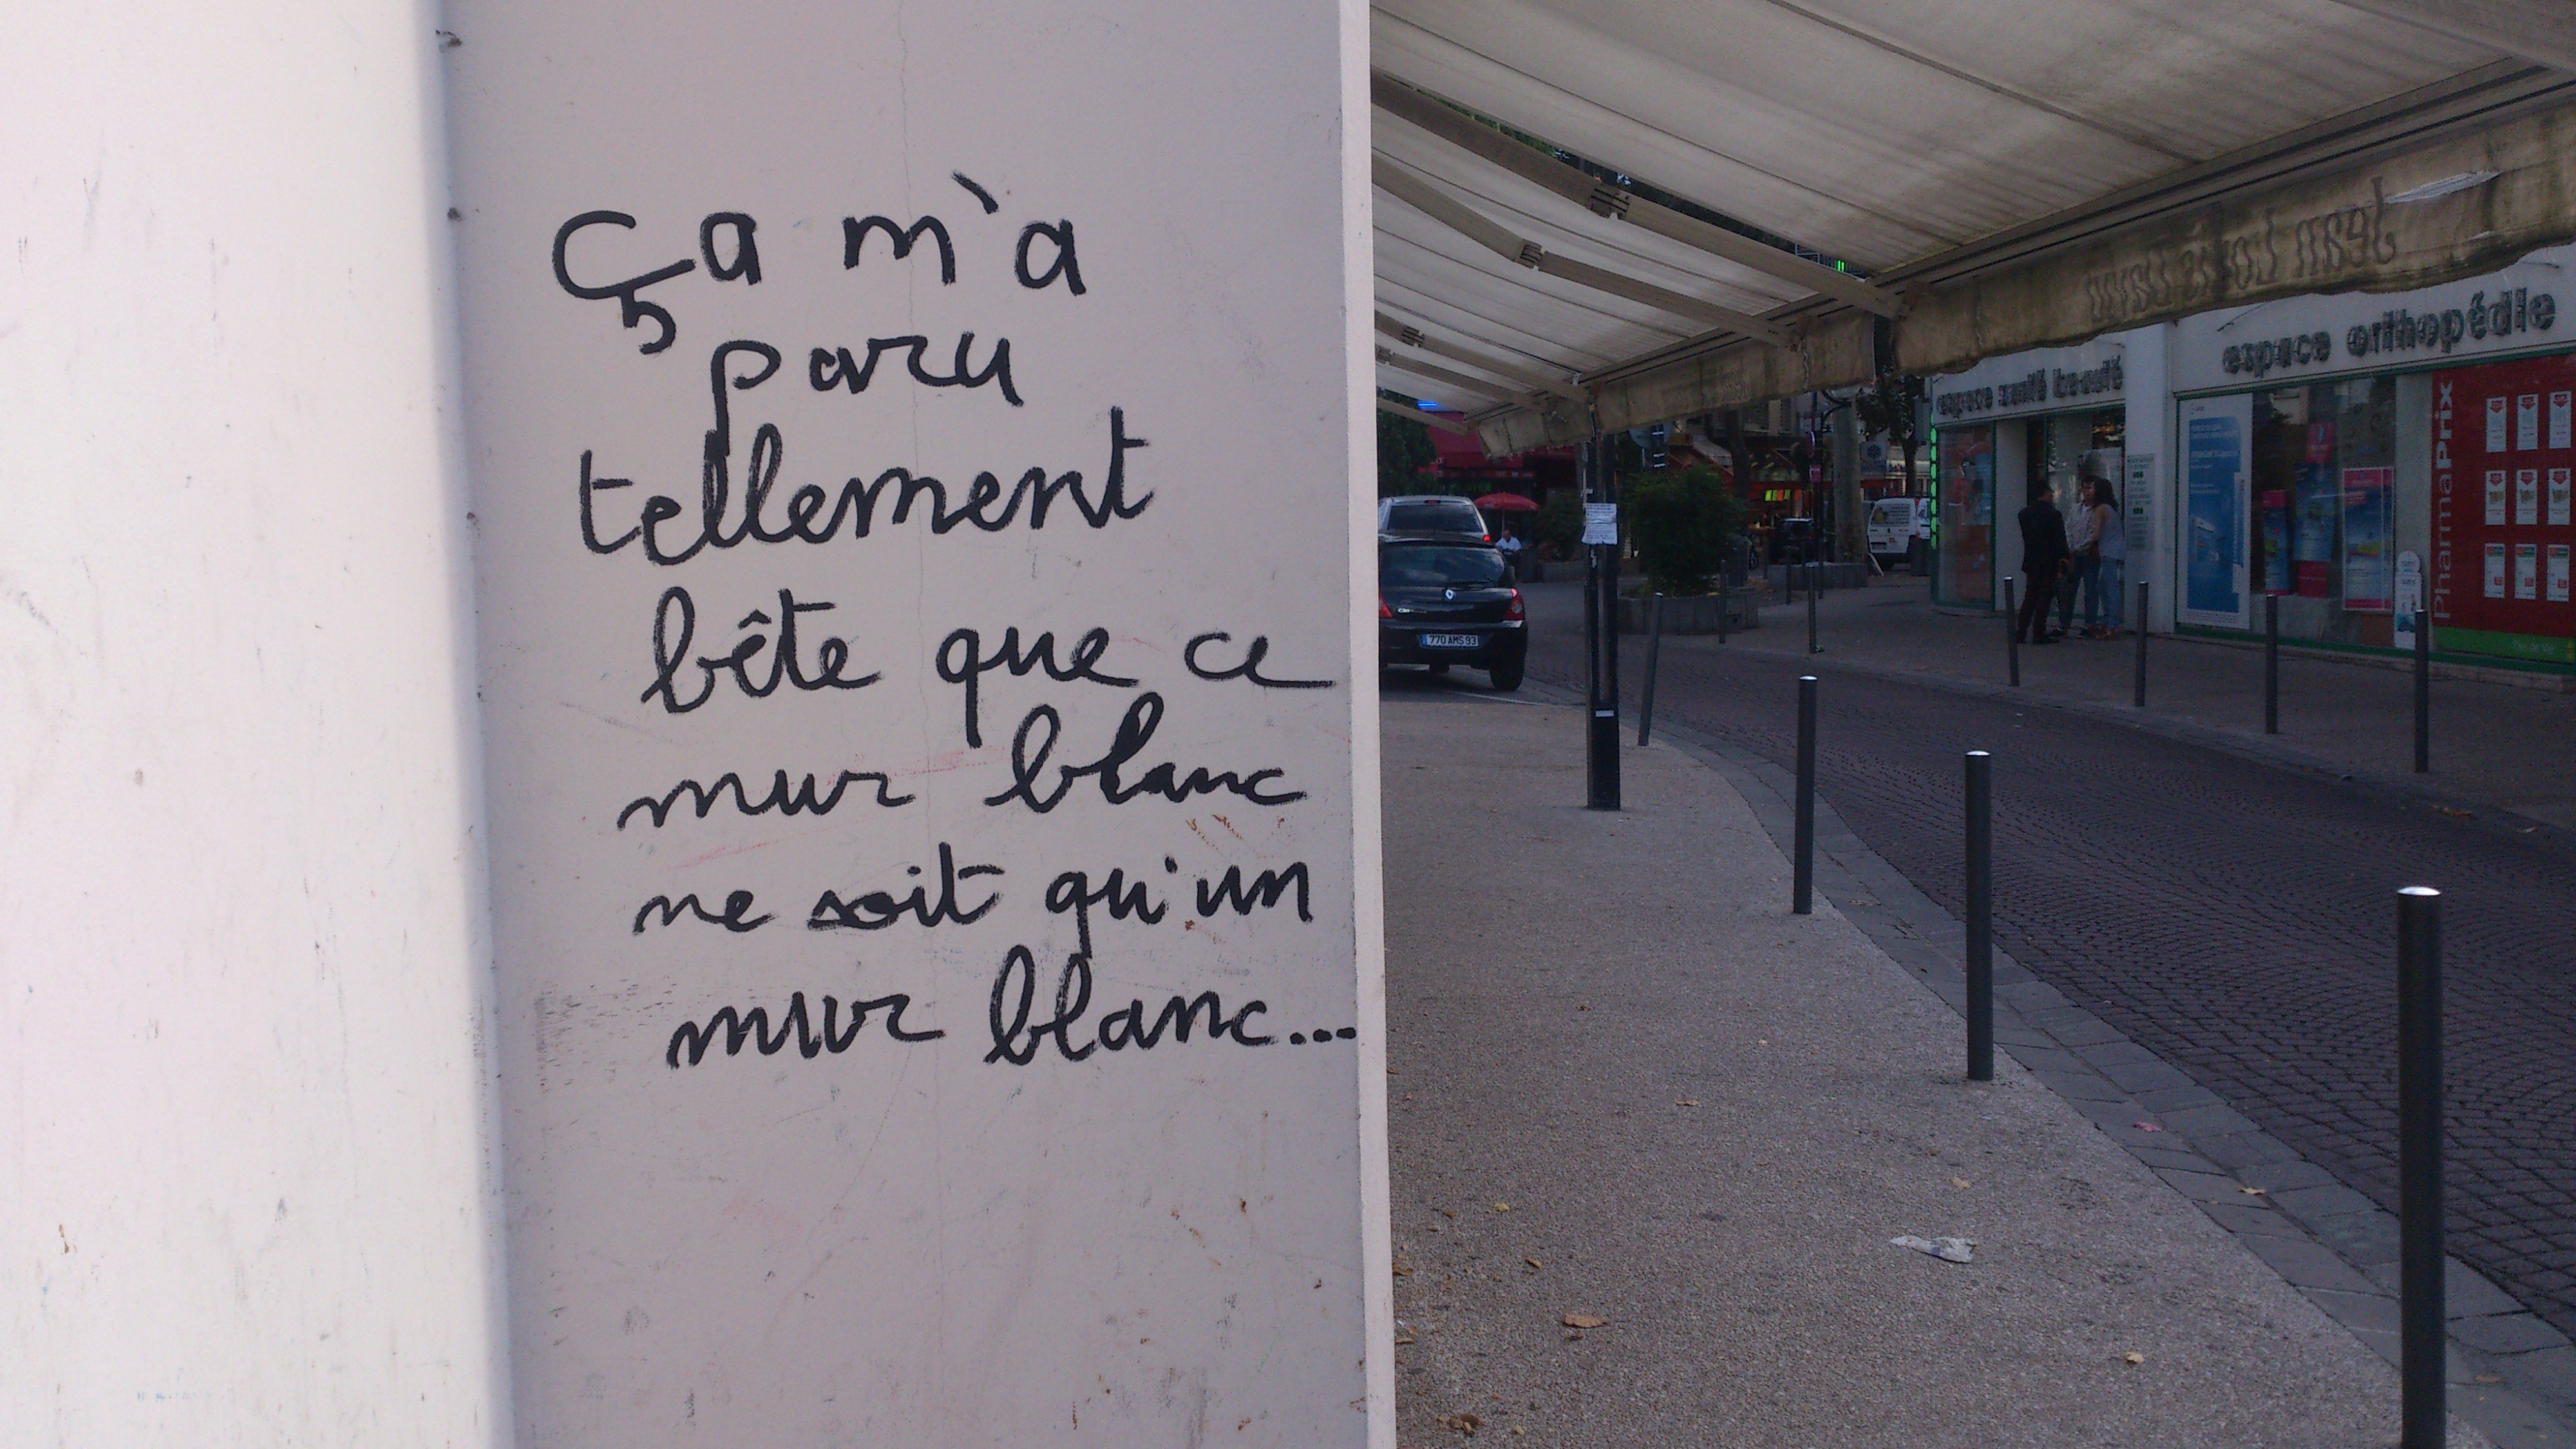 Ça m'a
paru
tellement
bête que ce
mur blanc
ne soit qu'un
mur blanc...
Jean Louis David
espace santé beauté
espace orthopédie
PharmaPrix
770 AMS 93